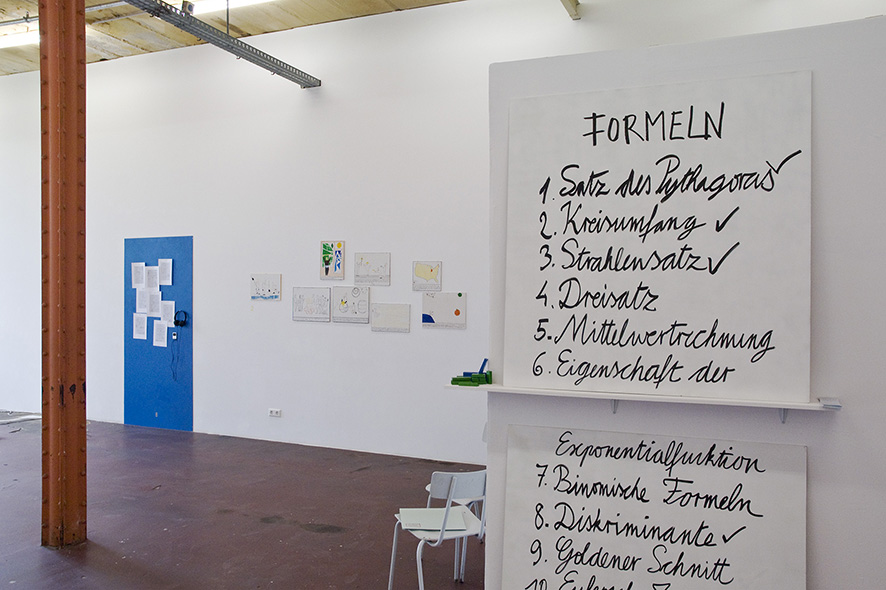 FORMELN
1. Satz des Pythagoras ✓
2. Kreisumfang ✓
3. Strahlensatz ✓
4. Dreisatz
5. Mittelwertrechnung
6. Eigenschaft der
Exponentialfunktion
7. Binomische Formeln
8. Diskriminante ✓
9. Goldener Schnitt
10.